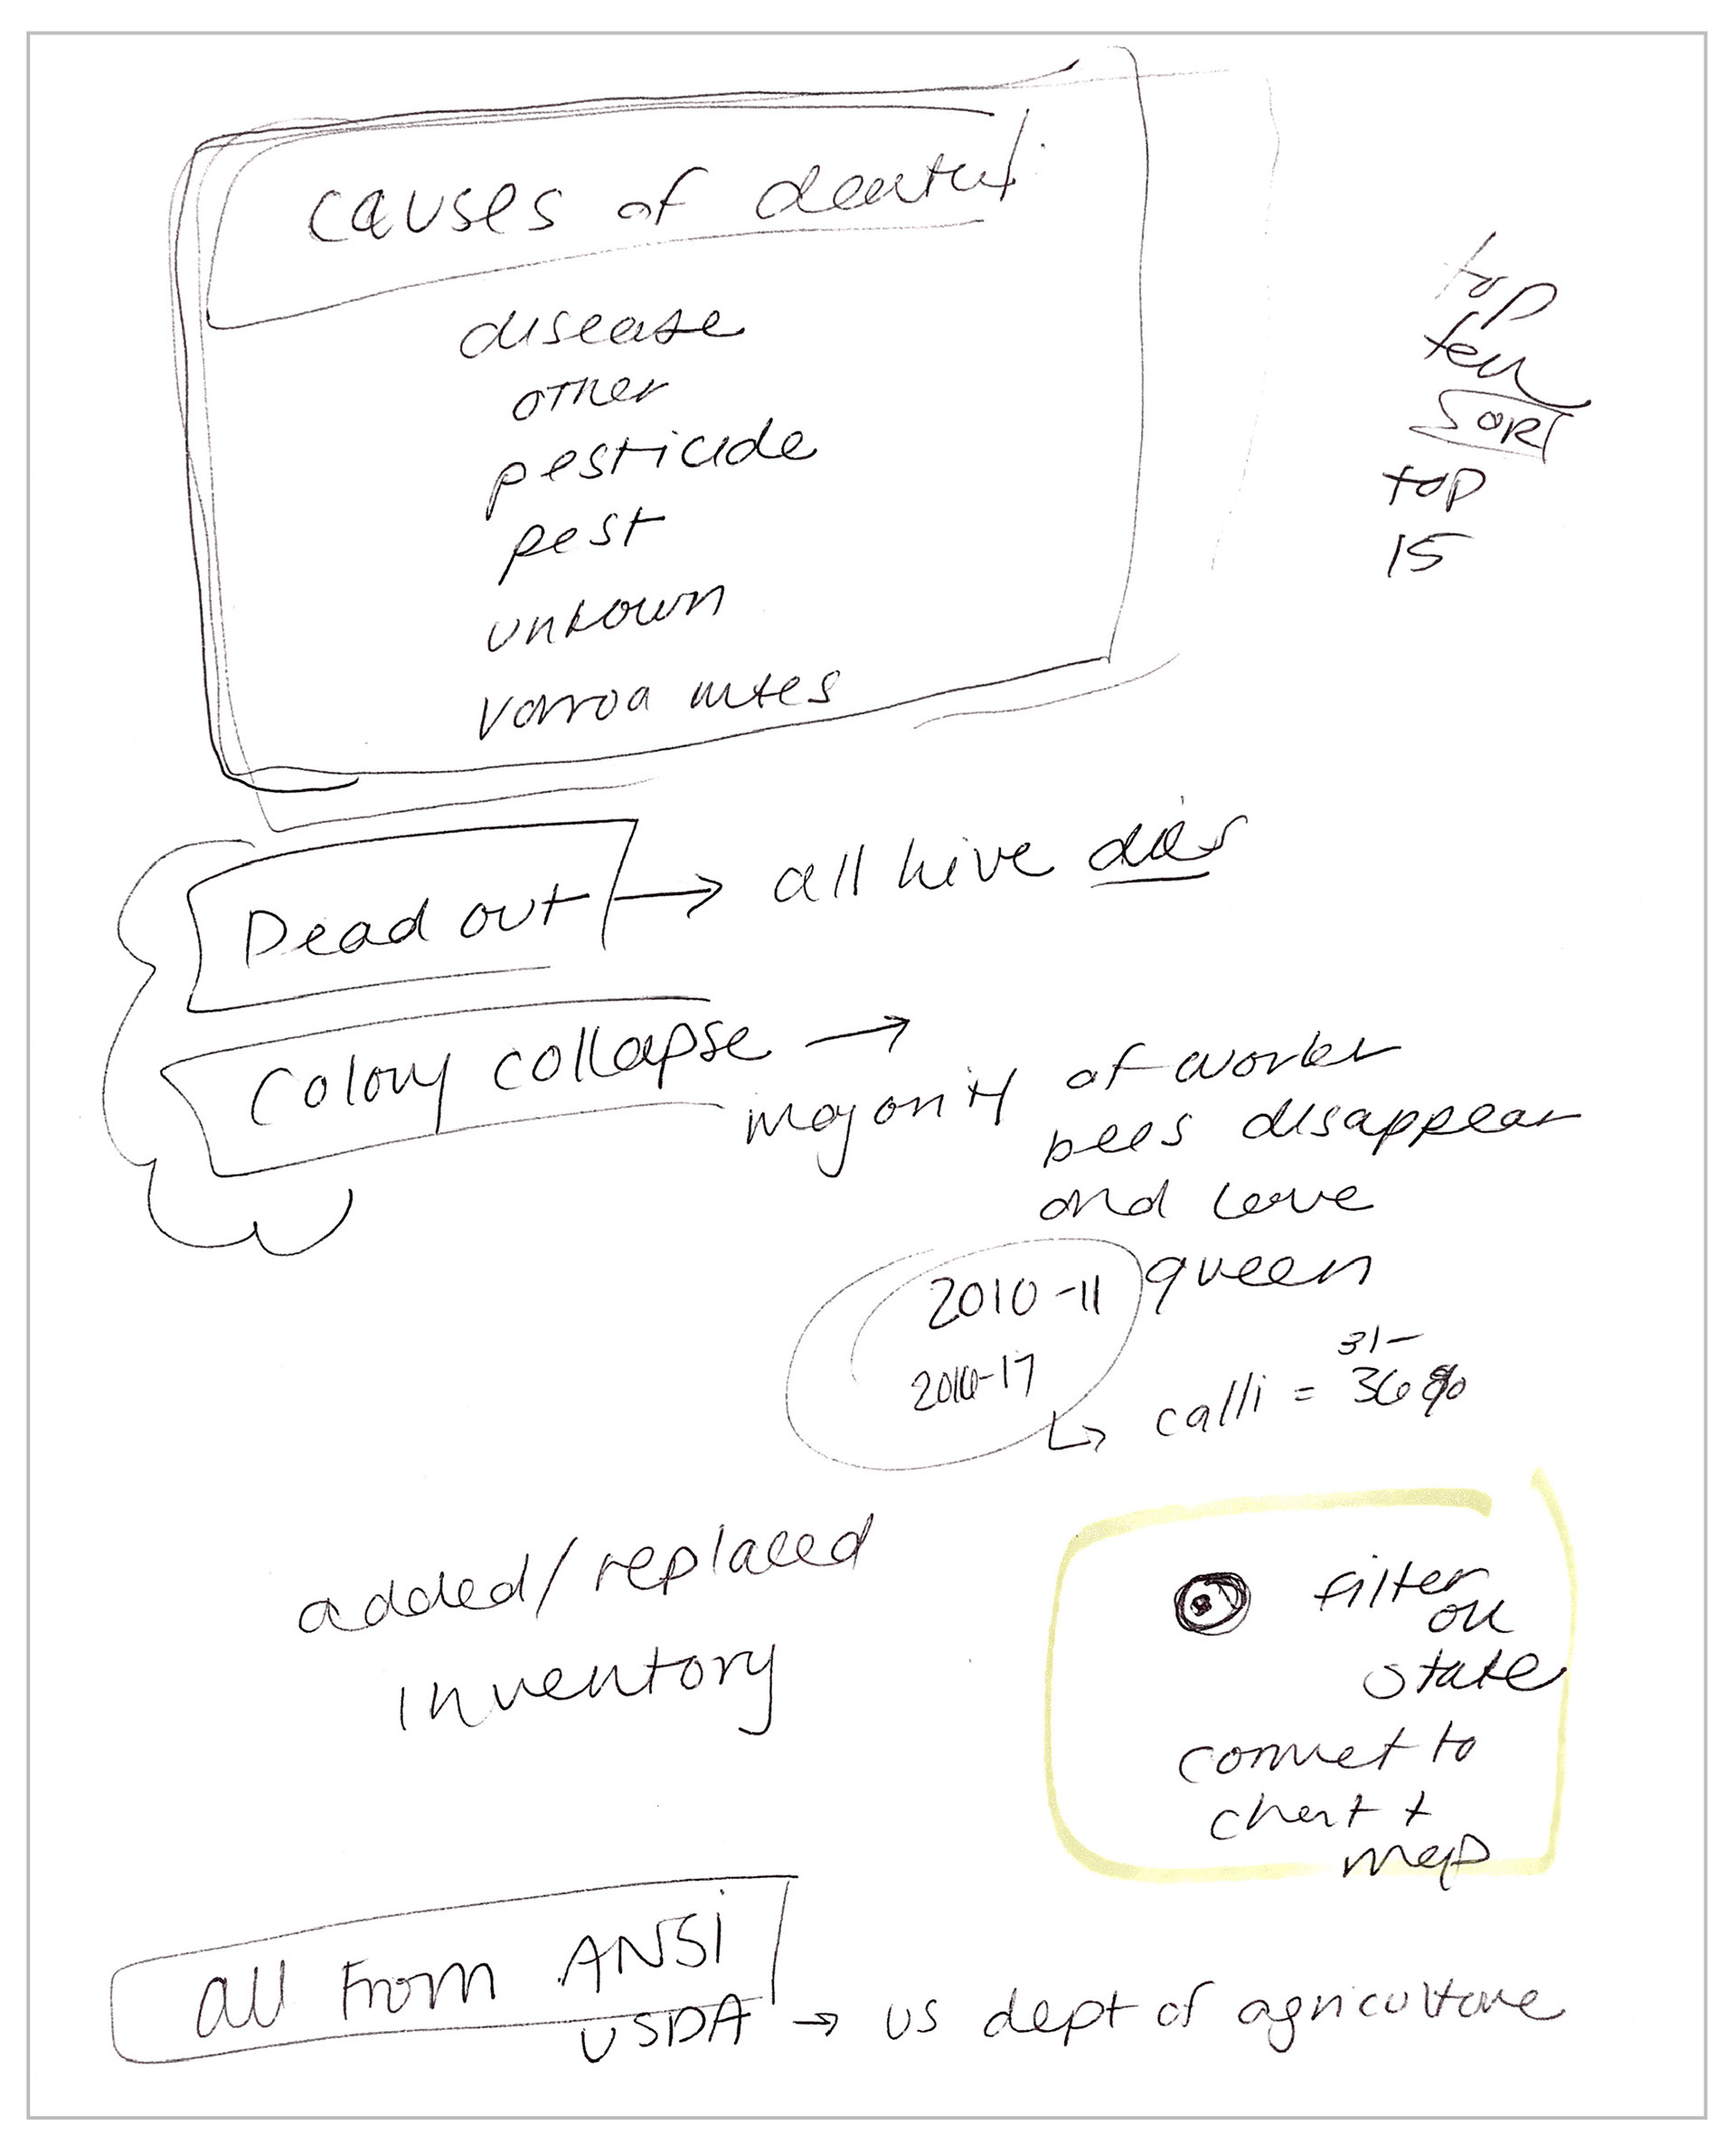 causes of death
disease
other
pesticide
pest
unkown
varroa mites
top
ten
SORT
top
15
Dead out → all hive dies
Colony collapse →
majority of worker
bees disappear
and leave
queen
2010-11
2016-17
↳ calli = 36%
31-
added/replaced
inventory
filter
on
state
connect to
chart +
map
all from ANSI
USDA → us dept of agriculture